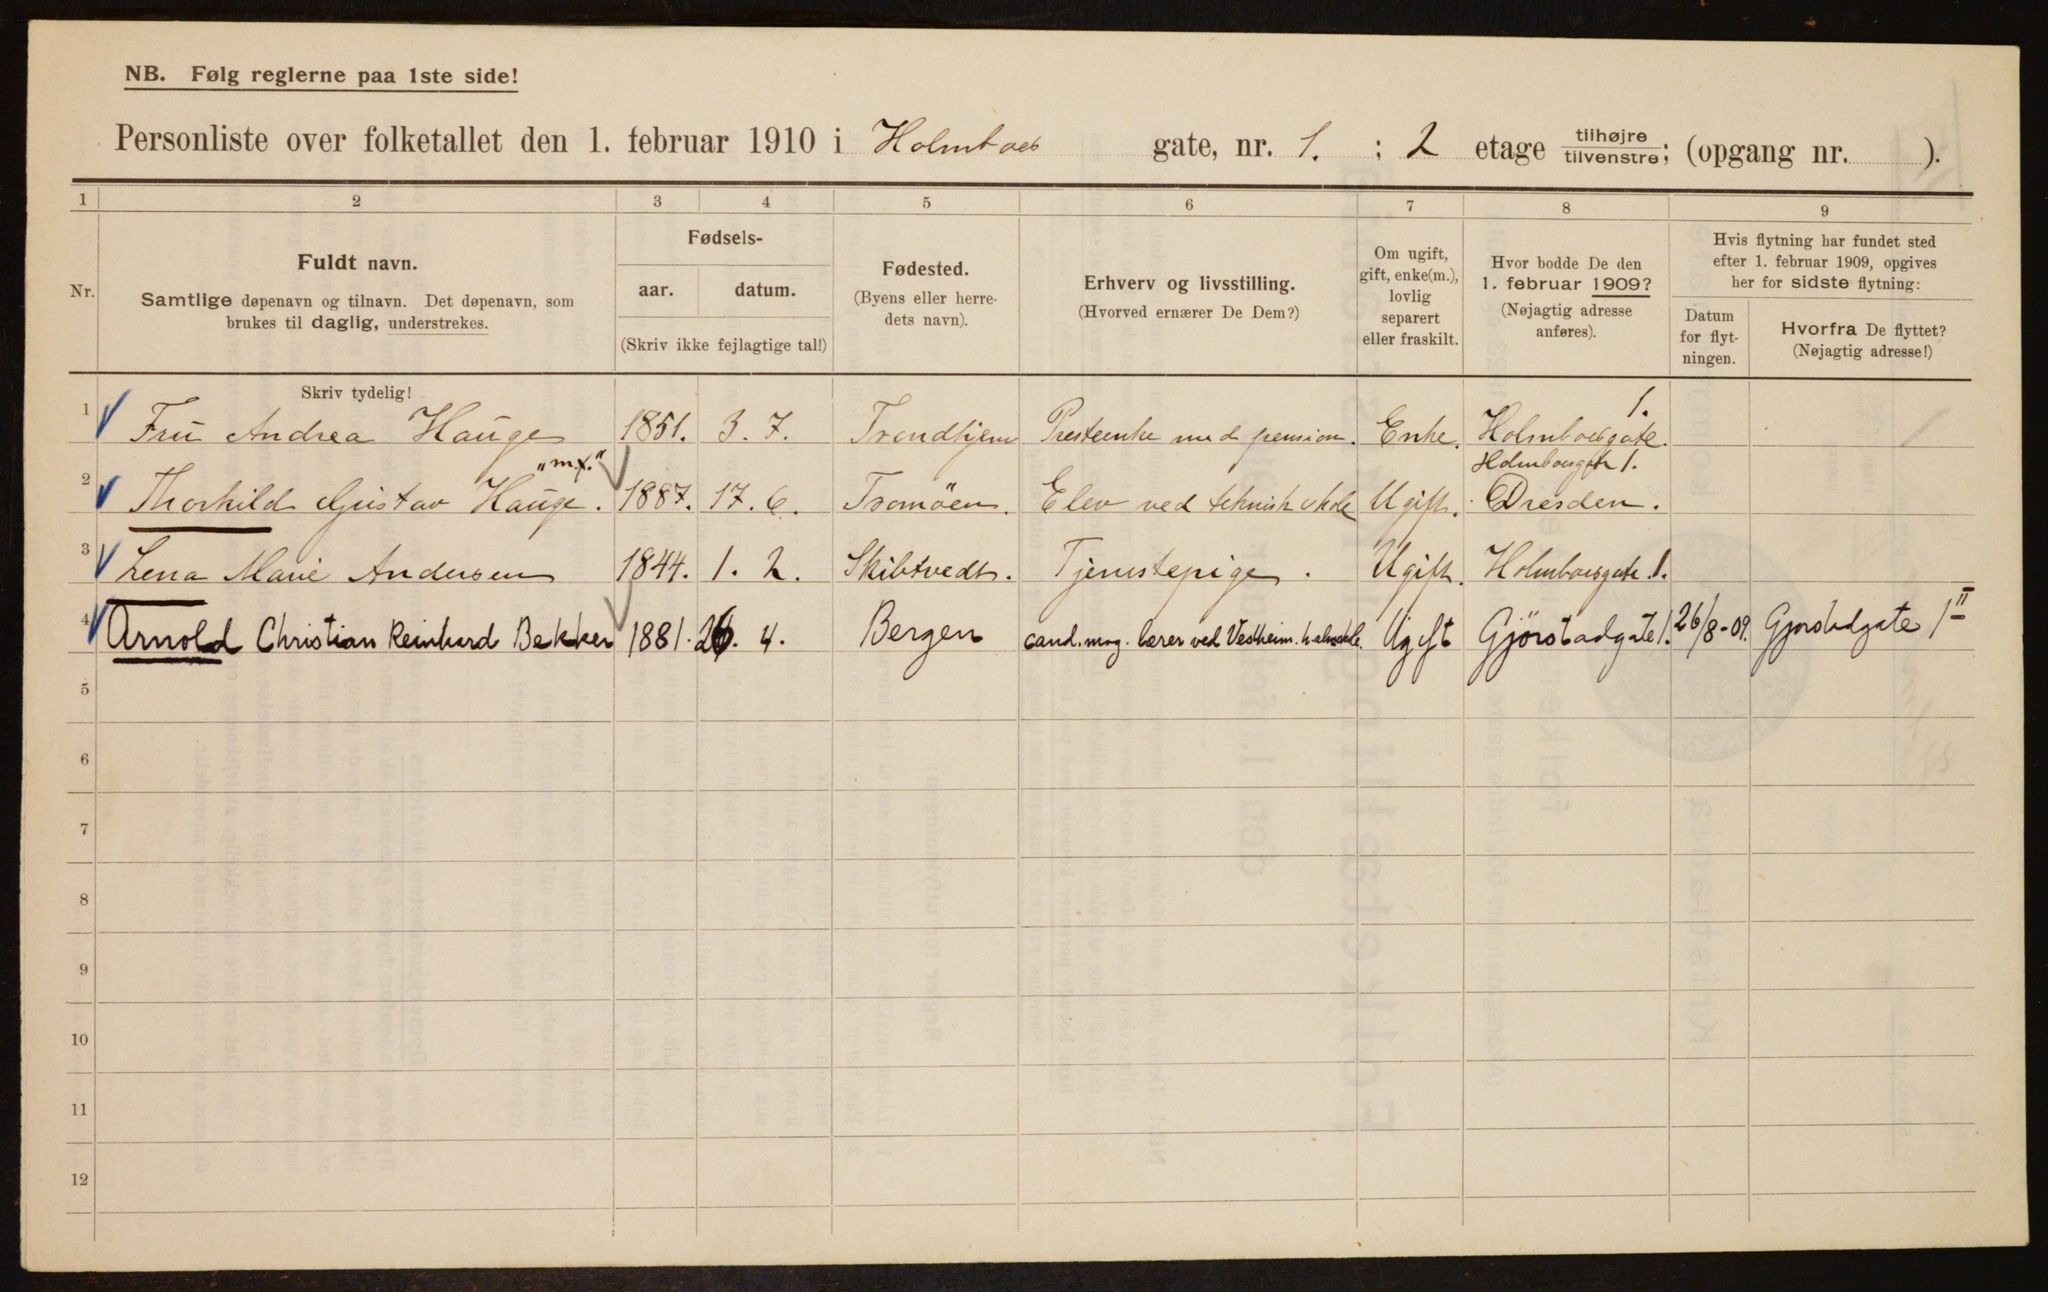 NB. Følg reglerne paa 1ste side!
Personliste over folketallet den 1. februar 1910 i Holmboes gate, nr. 1. ; 2 etage tilhøjre/tilvenstre; (opgang nr. ).
1 2 3 4 5 6 7 8 9
Nr.
Fuldt navn.
Samtlige døpenavn og tilnavn. Det døpenavn, som
brukes til daglig, understrekes.
Fødsels-
aar. datum.
(Skriv ikke fejlagtige tal!)
Fødested.
(Byens eller herre-
dets navn).
Erhverv og livsstilling.
(Hvorved ernærer De Dem?)
Om ugift,
gift, enke(m.),
lovlig
separert
eller fraskilt.
Hvor bodde De den
1. februar 1909?
(Nøjagtig adresse
anføres).
Hvis flytning har fundet sted
efter 1. februar 1909, opgives
her for sidste flytning:
Datum
for flyt-
ningen.
Hvorfra De flyttet?
(Nøjagtig adresse!)
Skriv tydelig!
1 Fru Andrea Hauge 1851. 3. 7. Trondhjem Presteenke med pension. Enke. Holmboesgate. 1.
"m.f." Holmboesgate 1.
2 Thorkild Gustav Hauge. 1887. 17. 6. Tromöen. Elev ved teknisk skole Ugift. Dresden.
3 Lena Marie Andersen 1844. 1. 2. Skibtvedt. Tjenestepige. Ugift. Holmboesgate 1.
4 Arnold Christian Reinhard Bekker 1881. 26. 4. Bergen cand. mag. lærer ved Vestheim. Ugift Gjörstadgate 1. 26/8-09. Gjörstadgate 1 II
5
6
7
8
9
10
11
12